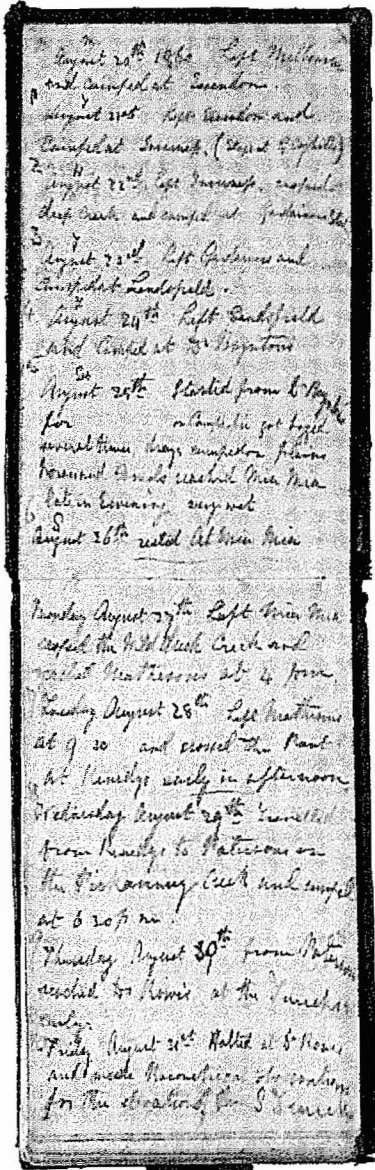 August 20th 1860 Left Melbourne
and camped at Essendon.
August 21st Left Essendon and
Camped at Inverness, (
August 22nd, left Inverness, crossed
deep Creek and camped at
August 23rd left Gardeners and
camped at Lancefield.
August 24th Left Lancefield
and Camped at Dr Bayntons
August 25th Started from Dr Baynton
for got boged
several times drays camped on plains
horses and camels reached Mia Mia
late in Evening very wet
August 26th rested At Mia Mia
Monday August 27th Left Mia Mia
crossed the Wild Duck Creek and
reached Mathesons at 4 pm
Tuesday August 28th Left Mathesons
at 9 30 and crossed the
at early in afternoon
Wednesday August 29th Travelled
from to Patersons on
the Creek and camped
at 6 30 p m.
Thursday August 30th from Patersons
reached Dr Rowes at the
early.
Friday August 31st Halted at Dr Rowes
and made
for the of